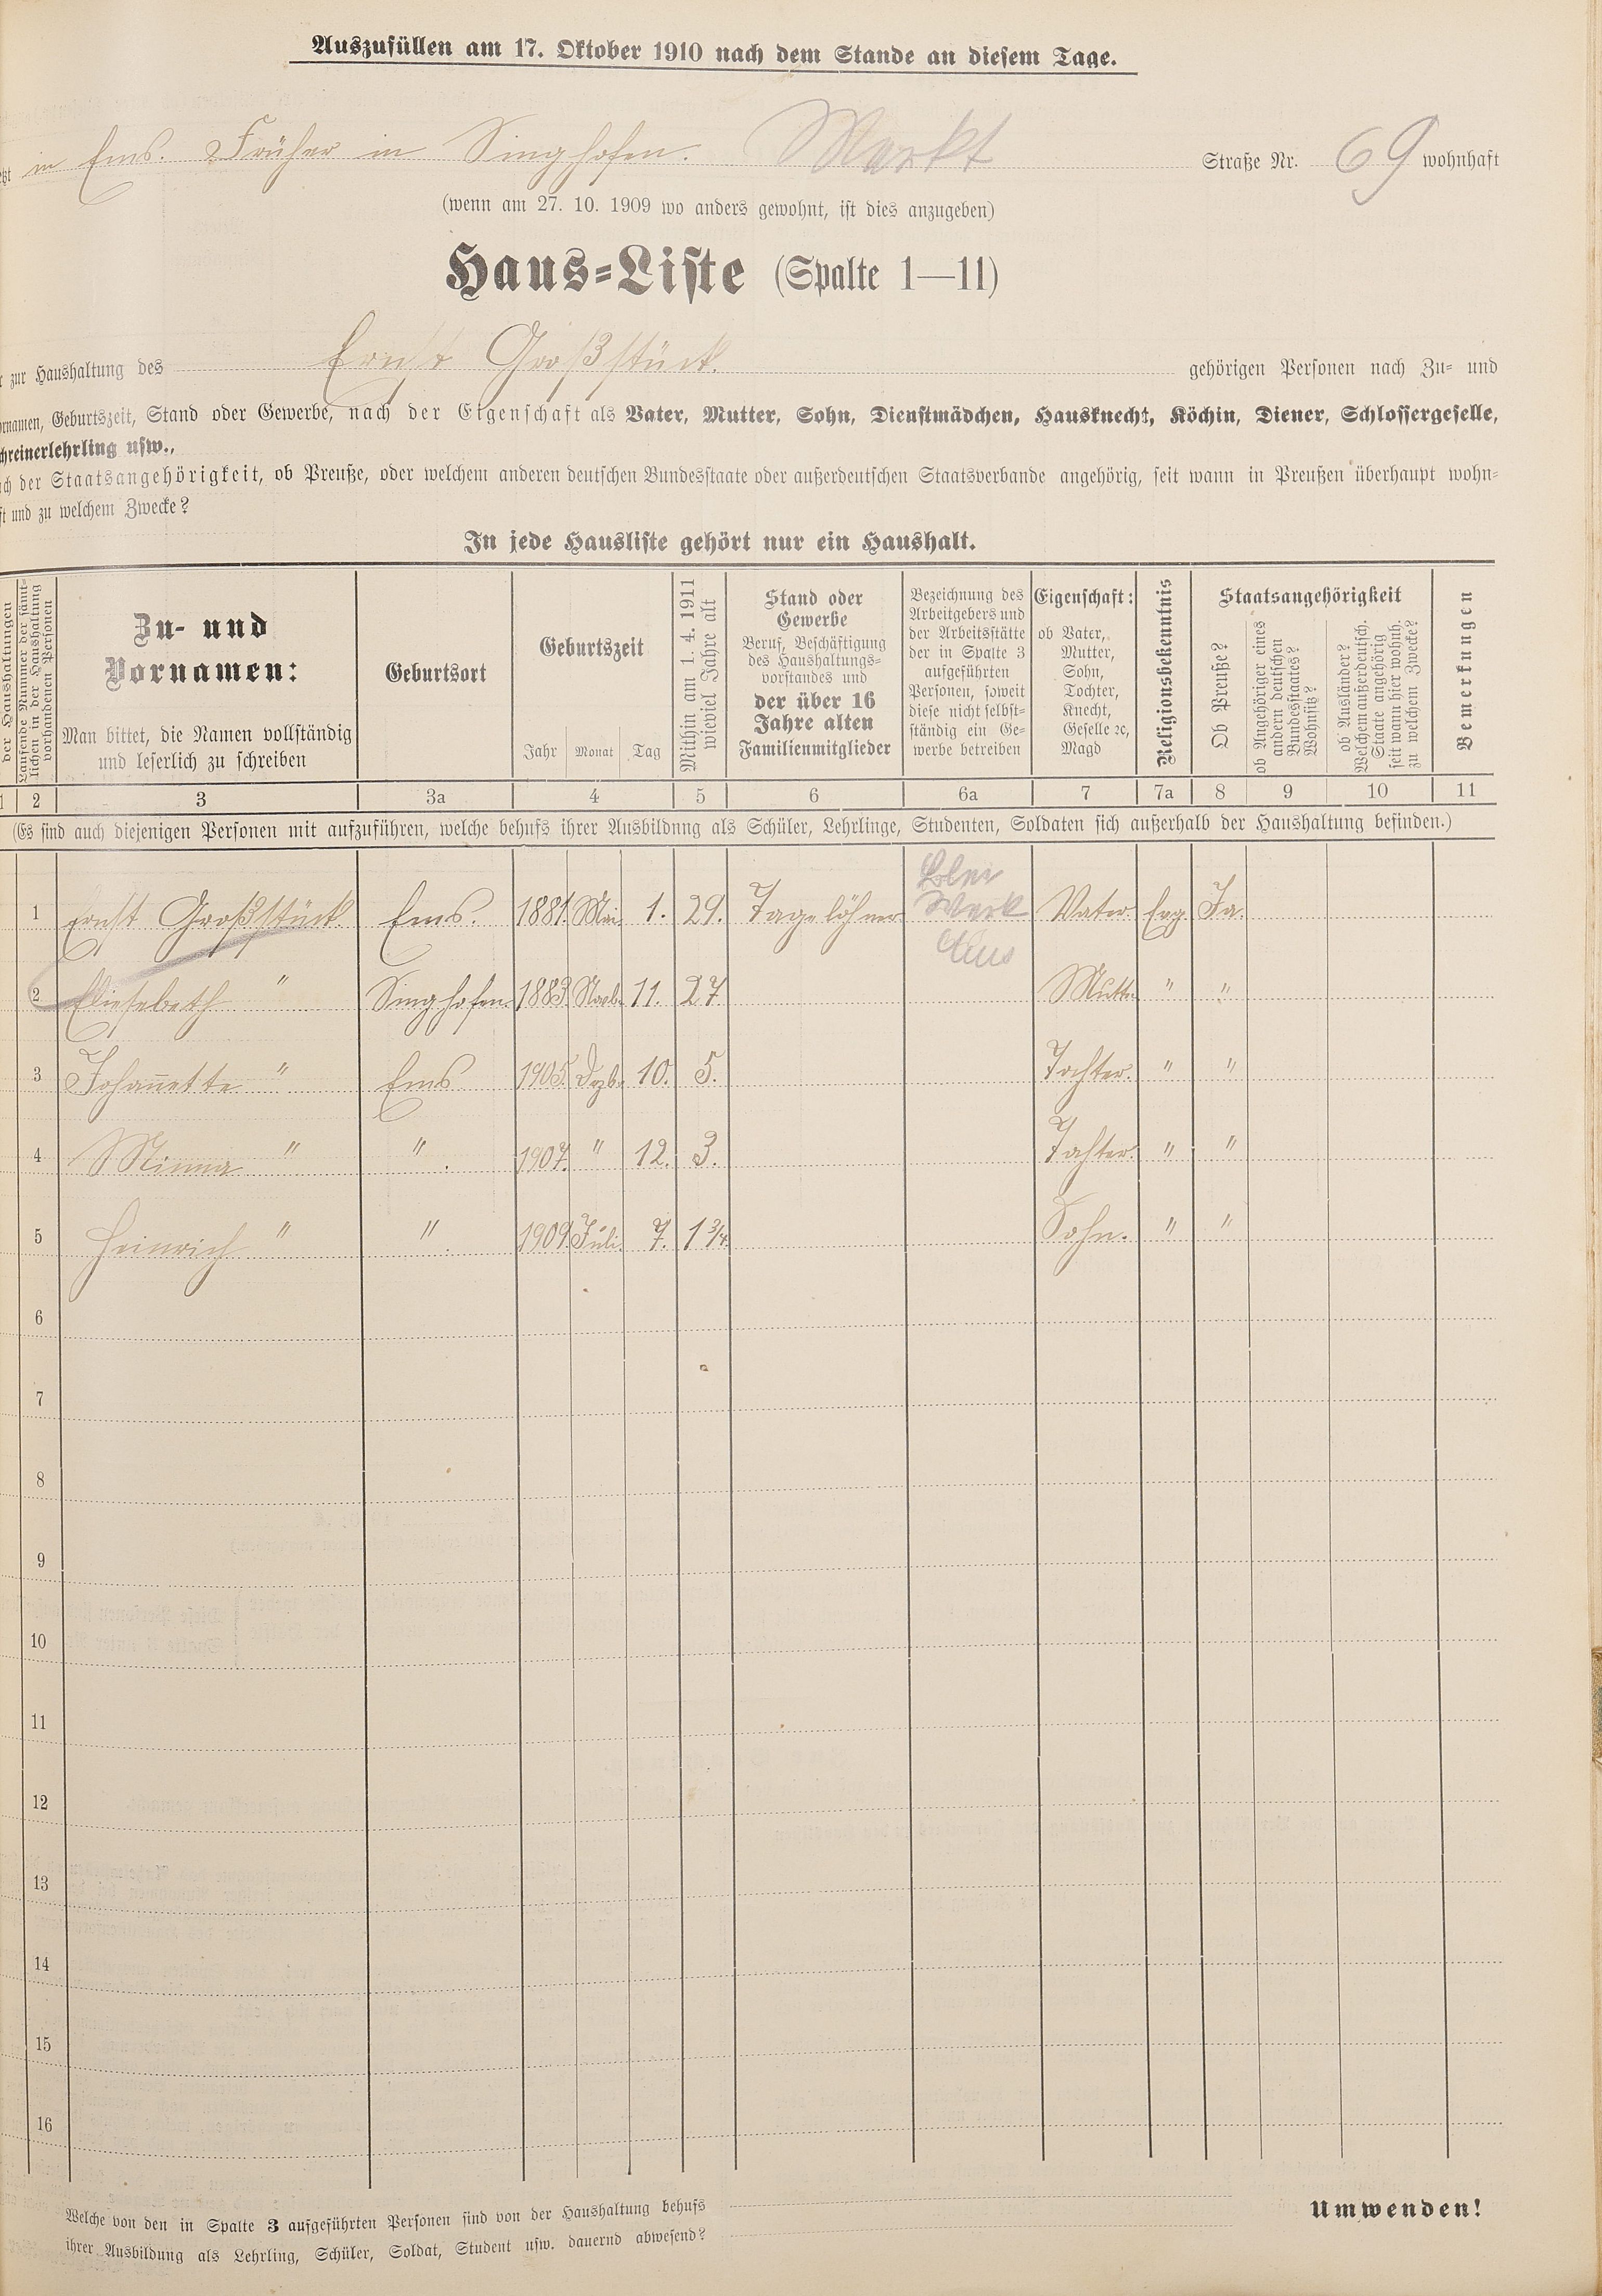 Auszufüllen am 17. Oktober 1910 nach dem Stande an diesem Tage.
in Ems. Früher in Singhofen. Markt Straße Nr. 69 wohnhaft
(wenn am 27. 10. 1909 wo anders gewohnt, ist dies anzugeben)
Haus-Liste (Spalte 1—11)
zur Haushaltung des Ernst Großstück. gehörigen Personen nach Zu- und
Geburtszeit, Stand oder Gewerbe, nach der Eigenschaft als Vater, Mutter, Sohn, Dienstmädchen, Hausknecht, Köchin, Diener, Schlossergeselle,
hreinerlehrling usw.,
ch der Staatsangehörigkeit, ob Preuße, oder welchem anderen deutschen Bundesstaate oder außerdeutschen Staatsverbande angehörig, seit wann in Preußen überhaupt wohn-
ft und zu welchem Zwecke?
In jede Hausliste gehört nur ein Haushalt.
der Haushaltungen
Laufende Nummer der sämt-
lichen in der Haushaltung
vorhandenen Personen
Zu- und
Vornamen:
Man bittet, die Namen vollständig
und leserlich zu schreiben
Geburtsort
Geburtszeit
Jahr Monat Tag
Mithin am 1. 4. 1911
wieviel Jahre alt
Stand oder
Gewerbe
Beruf, Beschäftigung
des Haushaltungs-
vorstandes und
der über 16
Jahre alten
Familienmitglieder
Bezeichnung des
Arbeitgebers und
der Arbeitsstätte
der in Spalte 3
aufgeführten
Personen, soweit
diese nicht selbst-
ständig ein Ge-
werbe betreiben
Eigenschaft:
ob Vater,
Mutter,
Sohn,
Tochter,
Knecht,
Geselle ꝛc,
Magd
Religionsbekenntnis
Staatsangehörigkeit
Ob Preuße?
ob Angehöriger eines
andern deutschen
Bundesstaates?
Wohnsitz?
ob Ausländer?
Welchem außerdeutsch.
Staate angehörig
seit wann hier wohnh.
zu welchem Zwecke?
Bemerkungen
1 2 3 3a 4 5 6 6a 7 7a 8 9 10 11
(Es sind auch diejenigen Personen mit aufzuführen, welche behufs ihrer Ausbildnng als Schüler, Lehrlinge, Studenten, Soldaten sich außerhalb der Haushaltung befinden.)
1 Ernst Großstück Ems. 1881. Mai. 1. 29. Tagelöhner Blei Werk Ems Vater. Evg. Ja.
2 Eliesebeth " Singhofen. 1883. Novb. 11. 27 Mutter " "
3 Johanette " Ems 1905. Dezb. 10. 5. Tochter. " "
4 Minna " " . 1907. " 12. 3. Tochter. " "
5 Heinrich " " . 1909. Juli. 7. 1 3/4. Sohn. " "
6
7
8
9
10
11
12
13
14
15
16
Welche von den in Spalte 3 aufgeführten Personen sind von der Haushaltung behufs
ihrer Ausbildung als Lehrling, Schüler, Soldat, Student usw. dauernd abwesend?
Umwenden!